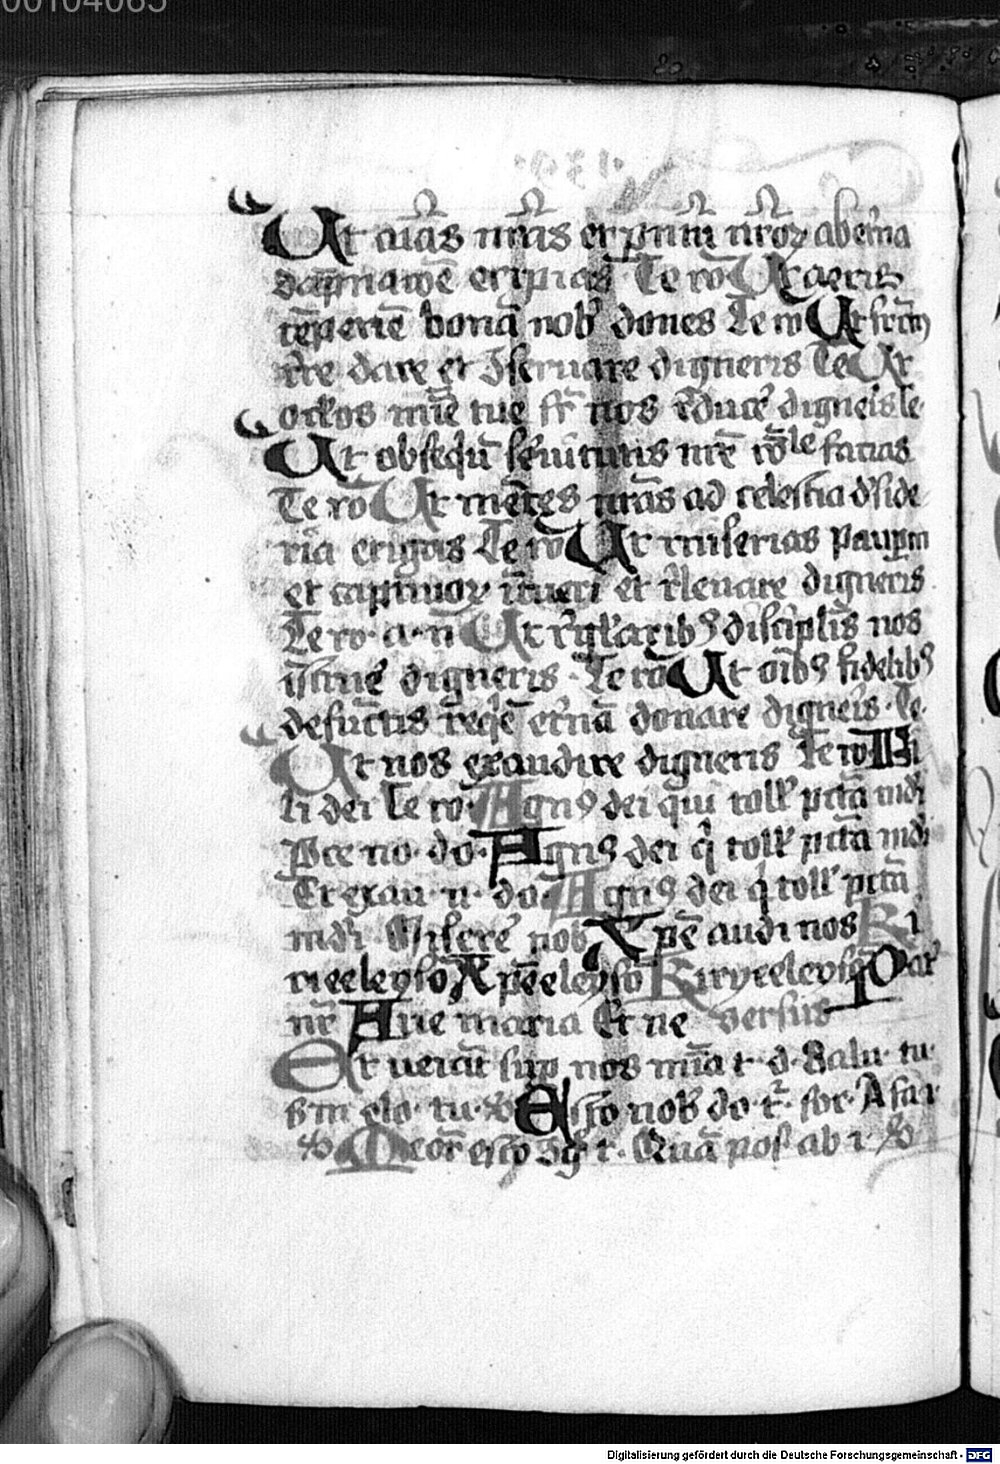 00104065
Ut aīas nr̄as et pn̄tū nr̄oꝝ ab et̉na
dāpnatōe eripias Te ro Ut aeris
tēperiē bonā nob̉ dones Te ro Ut fruct9
tr̄e dare et ꝯseruare digneris Te Ut
oc̉los mīe tue sr̄ nos r̉ducẻ digneis te
Ut obsequiū s̉uitutis nr̄e rōle facias
Te ro Ut mētes nr̄as ad celestia d̉side
ria erigas Te ro Ut miserias paup̄m
et captiuoꝝ ītueri et r̉leuare digneris
Te ro a n Ut r̉gl̉arib9 disciplīs nos
īstruẻ digneris Te ro Ut oīb9 fidelib9
defūctis reqiē et̉nā donare digneis Te
Ut nos exaudire digneris Te ro Fi
li dei Te ro Agn9 dei qui toll̉ pctā mdi
Pce no do Agn9 dei q̄ toll̉ pctā mdi
Et exau n do Agn9 dei q̄ toll̉ pctā
mdi Miserẻ nob Xp̄e audi nos Ki
rieeleysō Xp̄eeleysō Kiryeeleysō Pat̉
nr̄ Aue maria Et ne versus
Et ueiāt sup nos mīa t d Salu tu
s̄m elo tu ℟ Esto nob̉ do t̄ for A fa i
℟ Memor esto ꝯg̉ t Quā pos̉ ab i ℟
Digitalisierung gefördert durch die Deutsche Forschungsgemeinschaft - DFG